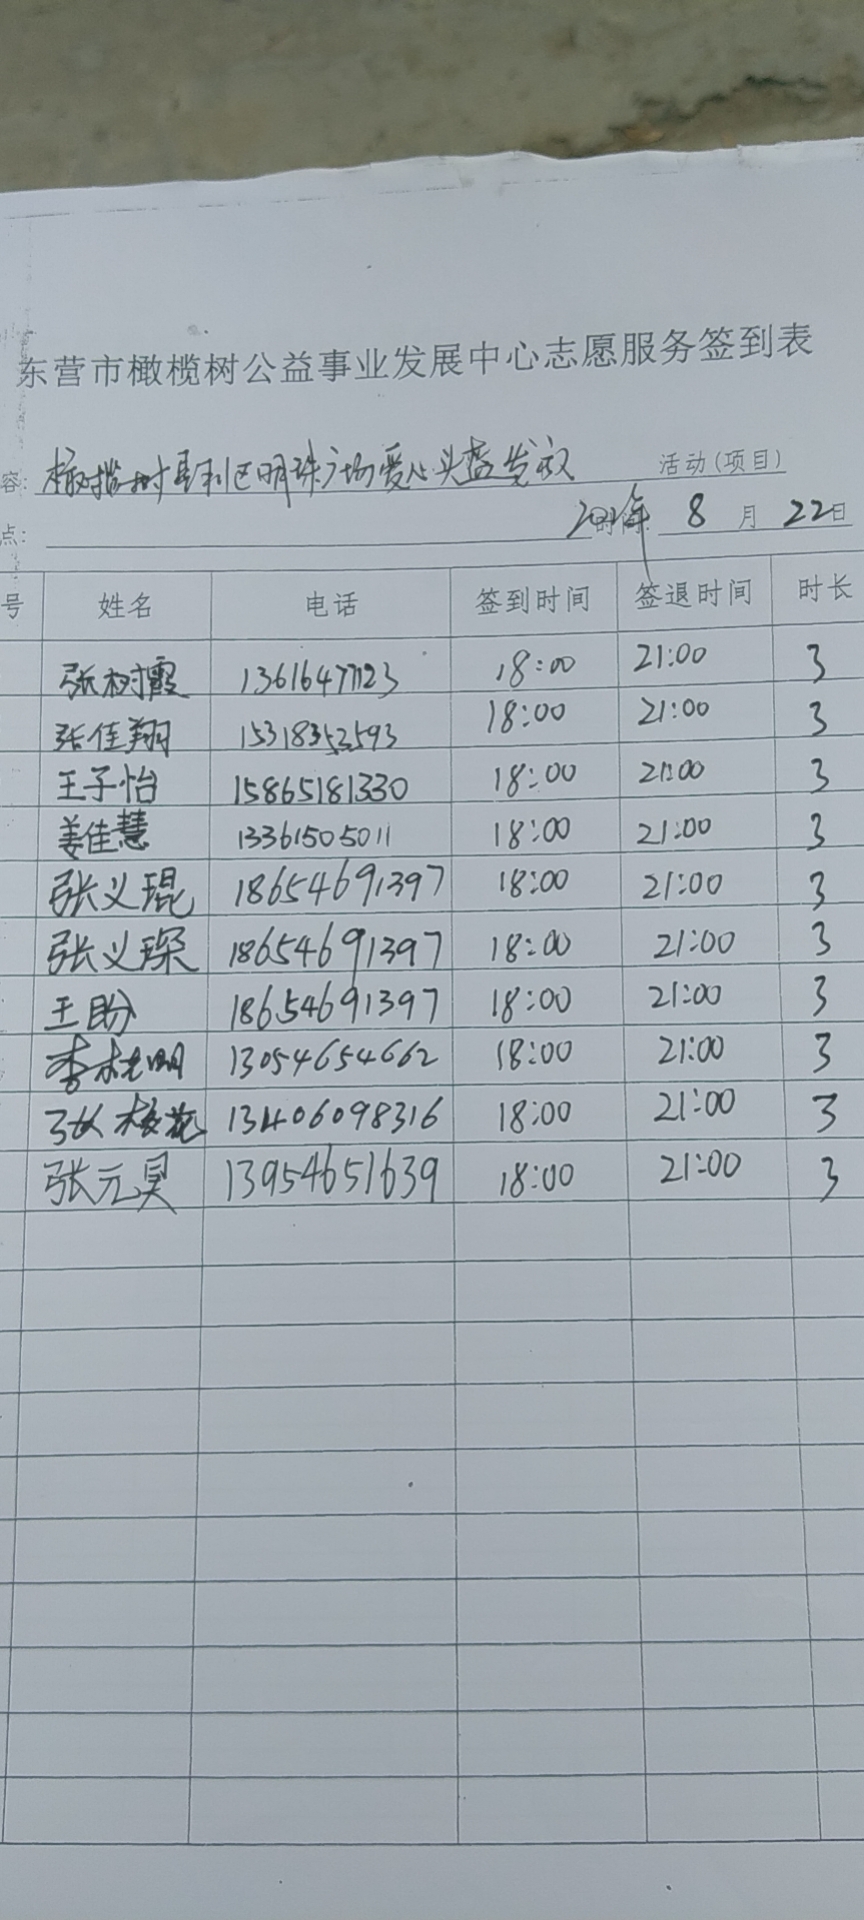 东营市橄榄树公益事业发展中心志愿服务签到表
容: 橄榄树垦利区明珠广场爱心头盔发放 活动(项目)
点: 年 8 月 22日
号 姓名 电话 签到时间 签退时间 时长
张树霞 13616477123 18:00 21:00 3
张佳翔 15318352593 18:00 21:00 3
王子怡 15865181330 18:00 21:00 3
姜佳慧 13361505011 18:00 21:00 3
张义琨 18654691397 18:00 21:00 3
张义琛 18654691397 18:00 21:00 3
王盼 18654691397 18:00 21:00 3
李 明 13054654662 18:00 21:00 3
张梅花 13406098316 18:00 21:00 3
张元昊 13954651639 18:00 21:00 3